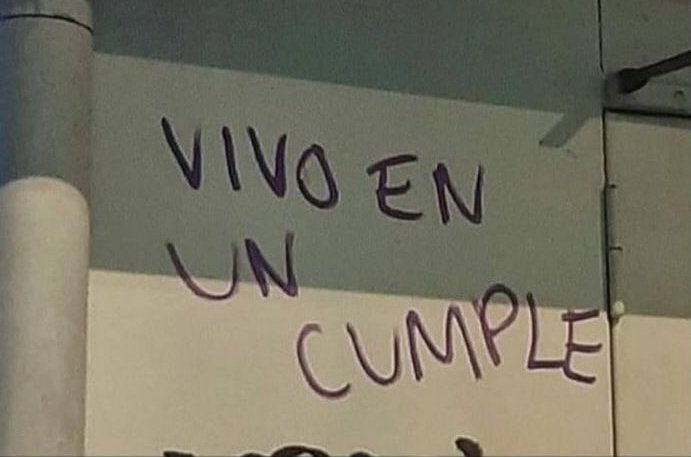 VIVO EN
UN
CUMPLE